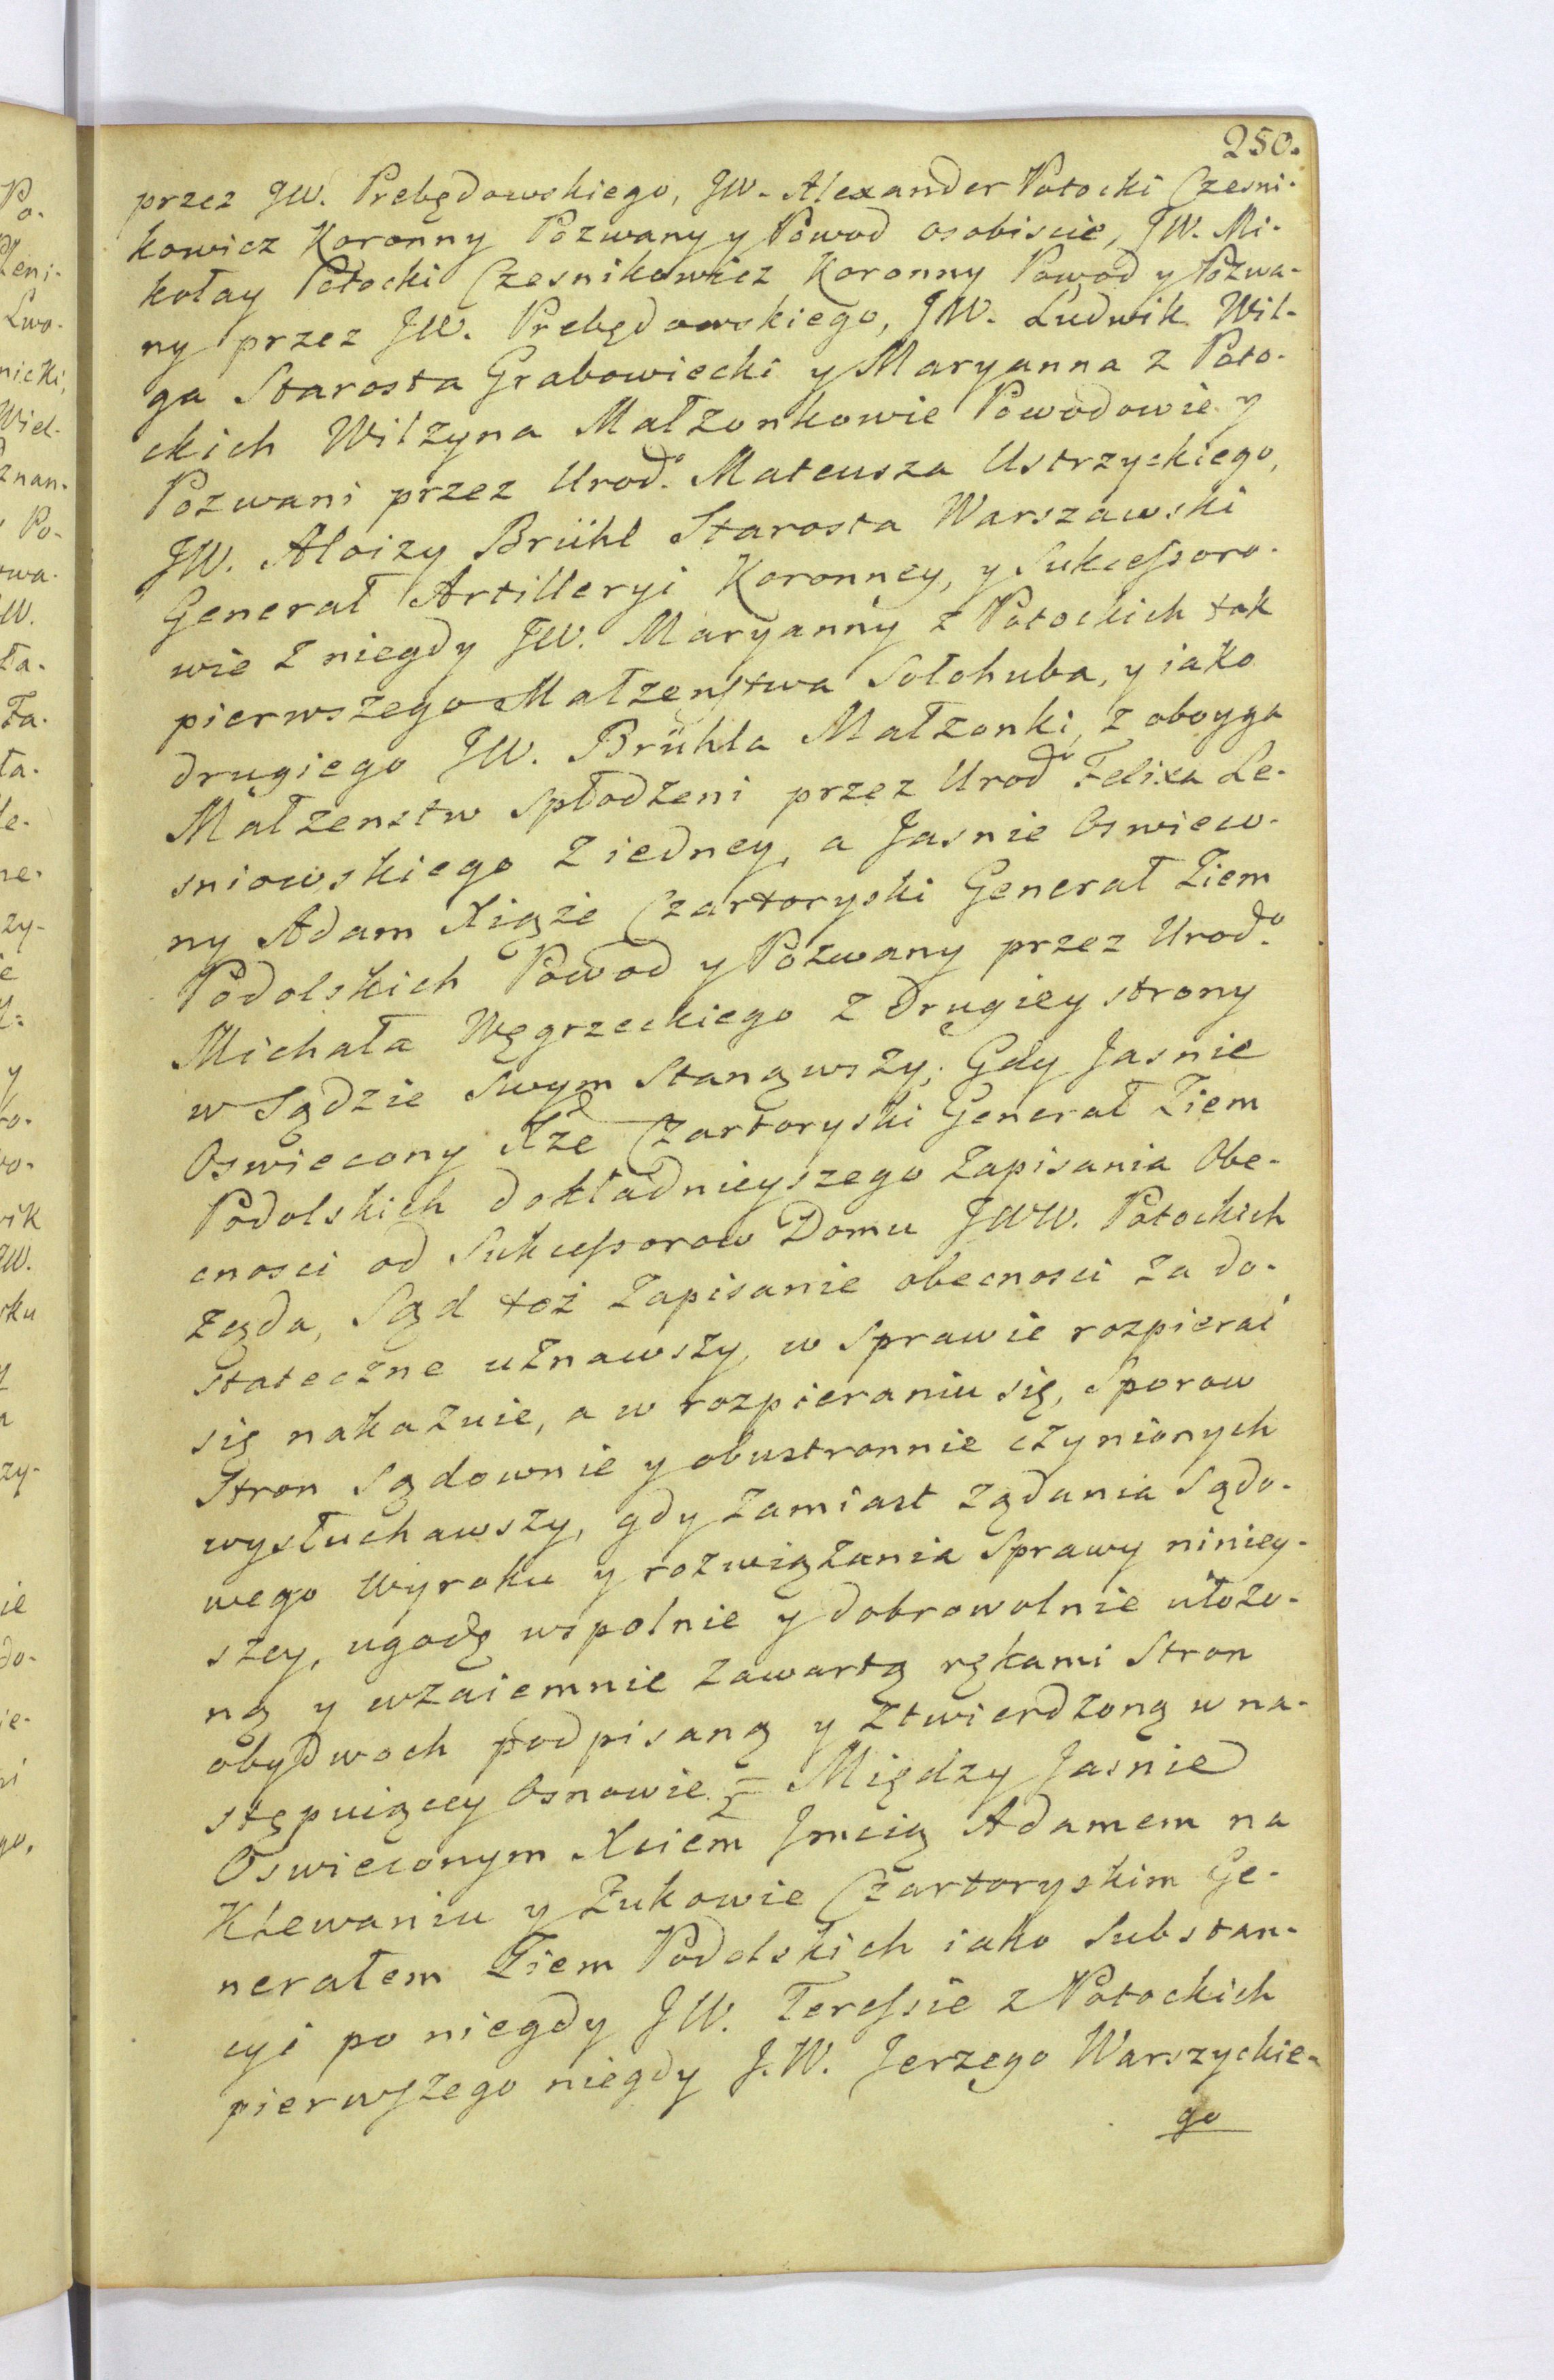 250.
przez JW. Prebędowskiego, JW. Alexander Potocki Czesni-
kowicz Koronny Pozwany y Powod osobiscie, JW. Mi-
kołay Potocki Czesnikowicz Koronny Powod y Pozwa-
ny przez JW. Prebędowskiego, JW. Ludwik Wil-
ga Starosta Grabowiecki y Maryanna z Poto-
ckich Wilzyna Małzonkowie Powodowie y
Pozwani przez Urod.o Mateusza Ustrzyckiego,
JW. Aloizy Brühl Starosta Warszawski
Generał Artilleryi Koronney, y Sukcessoro-
wie z niegdy JW. Maryanny z Potockich tak
pierwszego Małzenstwa Sołohuba, y iako
drugiego JW. Brühla Małzonki, z oboyga
Małzenstw spłodzeni przez Urod.o Felixa Le-
sniowskiego z iedney, a Jasnie Oswieco-
ny Adam Xiąże Czartoryski Generał Ziem
Podolskich Powod y Pozwany przez Urod.o
Michała Węgrzeckiego z drugiey strony
w Sądzie swym stanąwszy; Gdy Jasnie
Oswiecony Xże Czartoryski Generał Ziem
Podolskich dokładnieyszego zapisania Obe-
cnosci od Sukcessorow Domu JWW. Potockich
ząda, Sąd toż zapisanie obecnosci za do-
stateczne uznawszy, w sprawie rozpierać
się nakazuie, a w rozpieraniu się, sporow
Stron Sądownie y obustronnie czynionych
wysłuchawszy, gdy zamiast ządania Sądo-
wego wyroku y rozwiązania sprawy niniey-
szey, ugodę wspolnie y dobrowolnie ułozo-
ną y wzaiemnie zawartą rękami Stron
obydwoch podpisaną y ztwierdzoną w na-
stępuiącey Osnowie = Między Jasnie
Oswieconym Xciem Jmcią Adamem na
Klewaniu y Zukowie Czartoryskim Ge-
nerałem Ziem Podolskich iako Substan-
cyi po niegdy JW. Teressie z Potockich
pierwszego niegdy J.W. Jerzego Warszyckie-
go